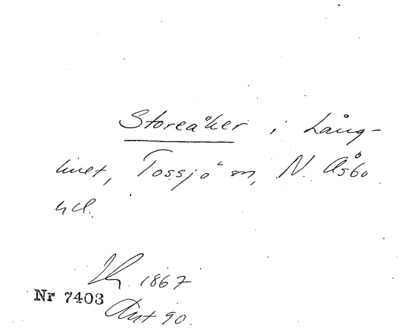 Storeåker i Lång-
huet, Tossjö sn, N. Åsbo
hd.
1867
Nr 7403
Ant 90.